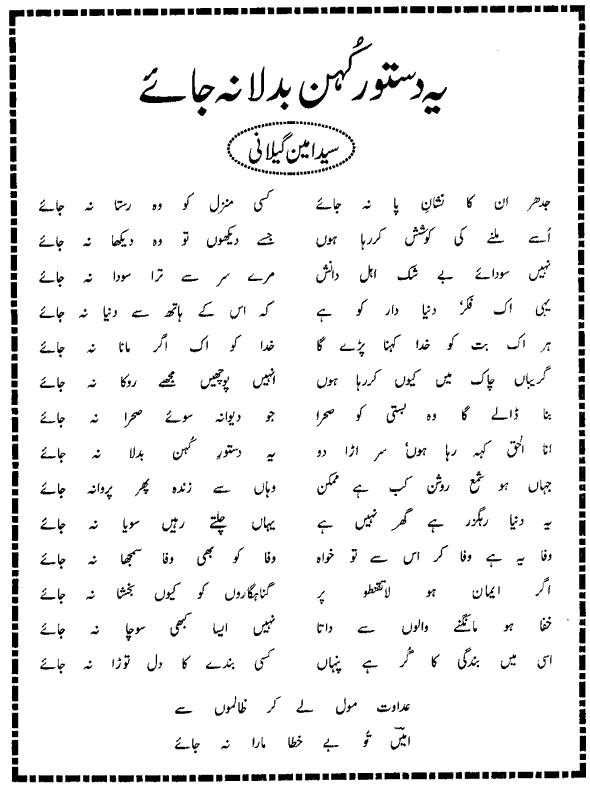 یہ دستور کُہن بدلا نہ جائے
سید امین گیلانی
جدھر ان کا نشانِ پا نہ جائے کسی منزل کو وہ رستا نہ جائے
اُسے ملنے کی کوشش کررہا ہوں جسے دیکھوں تو وہ دیکھا نہ جائے
نہیں سودائے بے شک اہل دانش مرے سر سے ترا سودا نہ جائے
یہی اک فکر دنیا دار کو ہے کہ اس کے ہاتھ سے دنیا نہ جائے
ہر اک بت کو خدا کہنا پڑے گا خدا کو اک اگر مانا نہ جائے
گریباں چاک میں کیوں کررہا ہوں انہیں پوچھیں مجھے روکا نہ جائے
بنا ڈالے گا وہ بستی کو صحرا جو دیوانہ سوئے صحرا نہ جائے
انا الحق کہہ رہا ہوں' سر اڑا دو یہ دستورِ کُہن بدلا نہ جائے
جہاں ہو شمع روشن کب ہے ممکن وہاں سے زندہ پھر پروانہ جائے
یہ دنیا رہگزر ہے گھر نہیں ہے یہاں چلتے رہیں سویا نہ جائے
وفا یہ ہے وفا کر اس سے تو خواہ وفا کو بھی وفا سمجھا نہ جائے
اگر ایمان ہو لاتقنطو پر گناہگاروں کو کیوں بخشا نہ جائے
خفا ہو مانگنے والوں سے داتا نہیں ایسا کبھی سوچا نہ جائے
اسی میں بندگی کا گُر ہے پنہاں کسی بندے کا دل توڑا نہ جائے
عداوت مول لے کر ظالموں سے
امیںؔ تُو بے خطا مارا نہ جائے